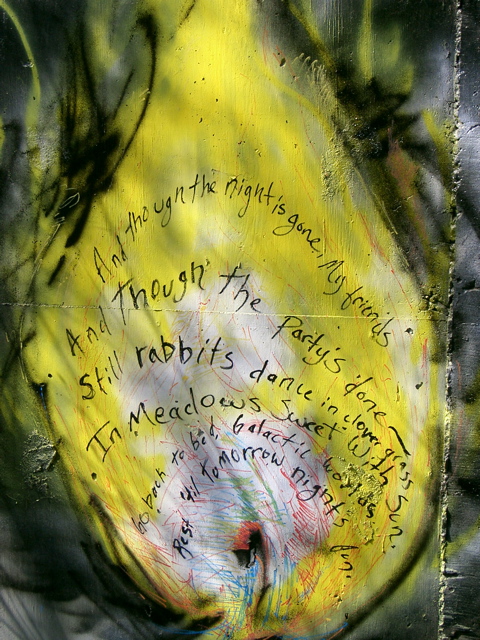 And though the night is gone, My friends
And Though the Party's done
Still rabbits dance in clover grass
In Meadows Sweet With Sun.
Go back to bed, Galactic
Rest 'til Tomorrow night's fun.